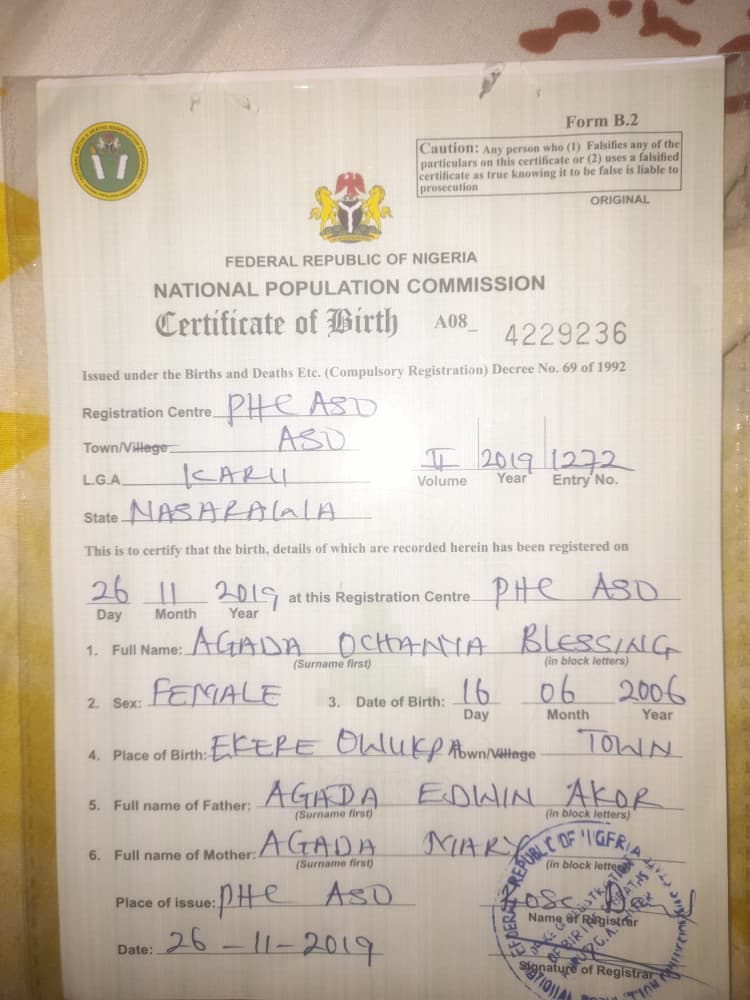 Form B.2
Caution: Any person who (1) Falsifies any of the
particulars on this certificate or (2) uses a falsified
certificate as true knowing it to be false is liable to
prosecution
ORIGINAL
FEDERAL REPUBLIC OF NIGERIA
NATIONAL POPULATION COMMISSION
Certificate of Birth A08_ 4229236
Issued under the Births and Deaths Etc. (Compulsory Registration) Decree No. 69 of 1992
Registration Centre PHC ASO
Town/Village ASO
L.G.A KARU II 2019 1272
Volume Year Entry No.
State NASARAWA
This is to certify that the birth, details of which are recorded herein has been registered on
26 11 2019 at this Registration Centre PHC ASO
Day Month Year
1. Full Name: AGADA OCHANYA BLESSING
(Surname first) (in block letters)
2. Sex: FEMALE 3. Date of Birth: 16 06 2006
Day Month Year
4. Place of Birth: EKERE OWUKPA Town/Village TOWN
5. Full name of Father: AGADA EDWIN AKOR
(Surname first) (in block letters)
6. Full name of Mother: AGADA MARY
(Surname first) (in block letters)
Place of issue: PHC ASO
Name of Registrar
Date: 26-11-2019
Signature of Registrar